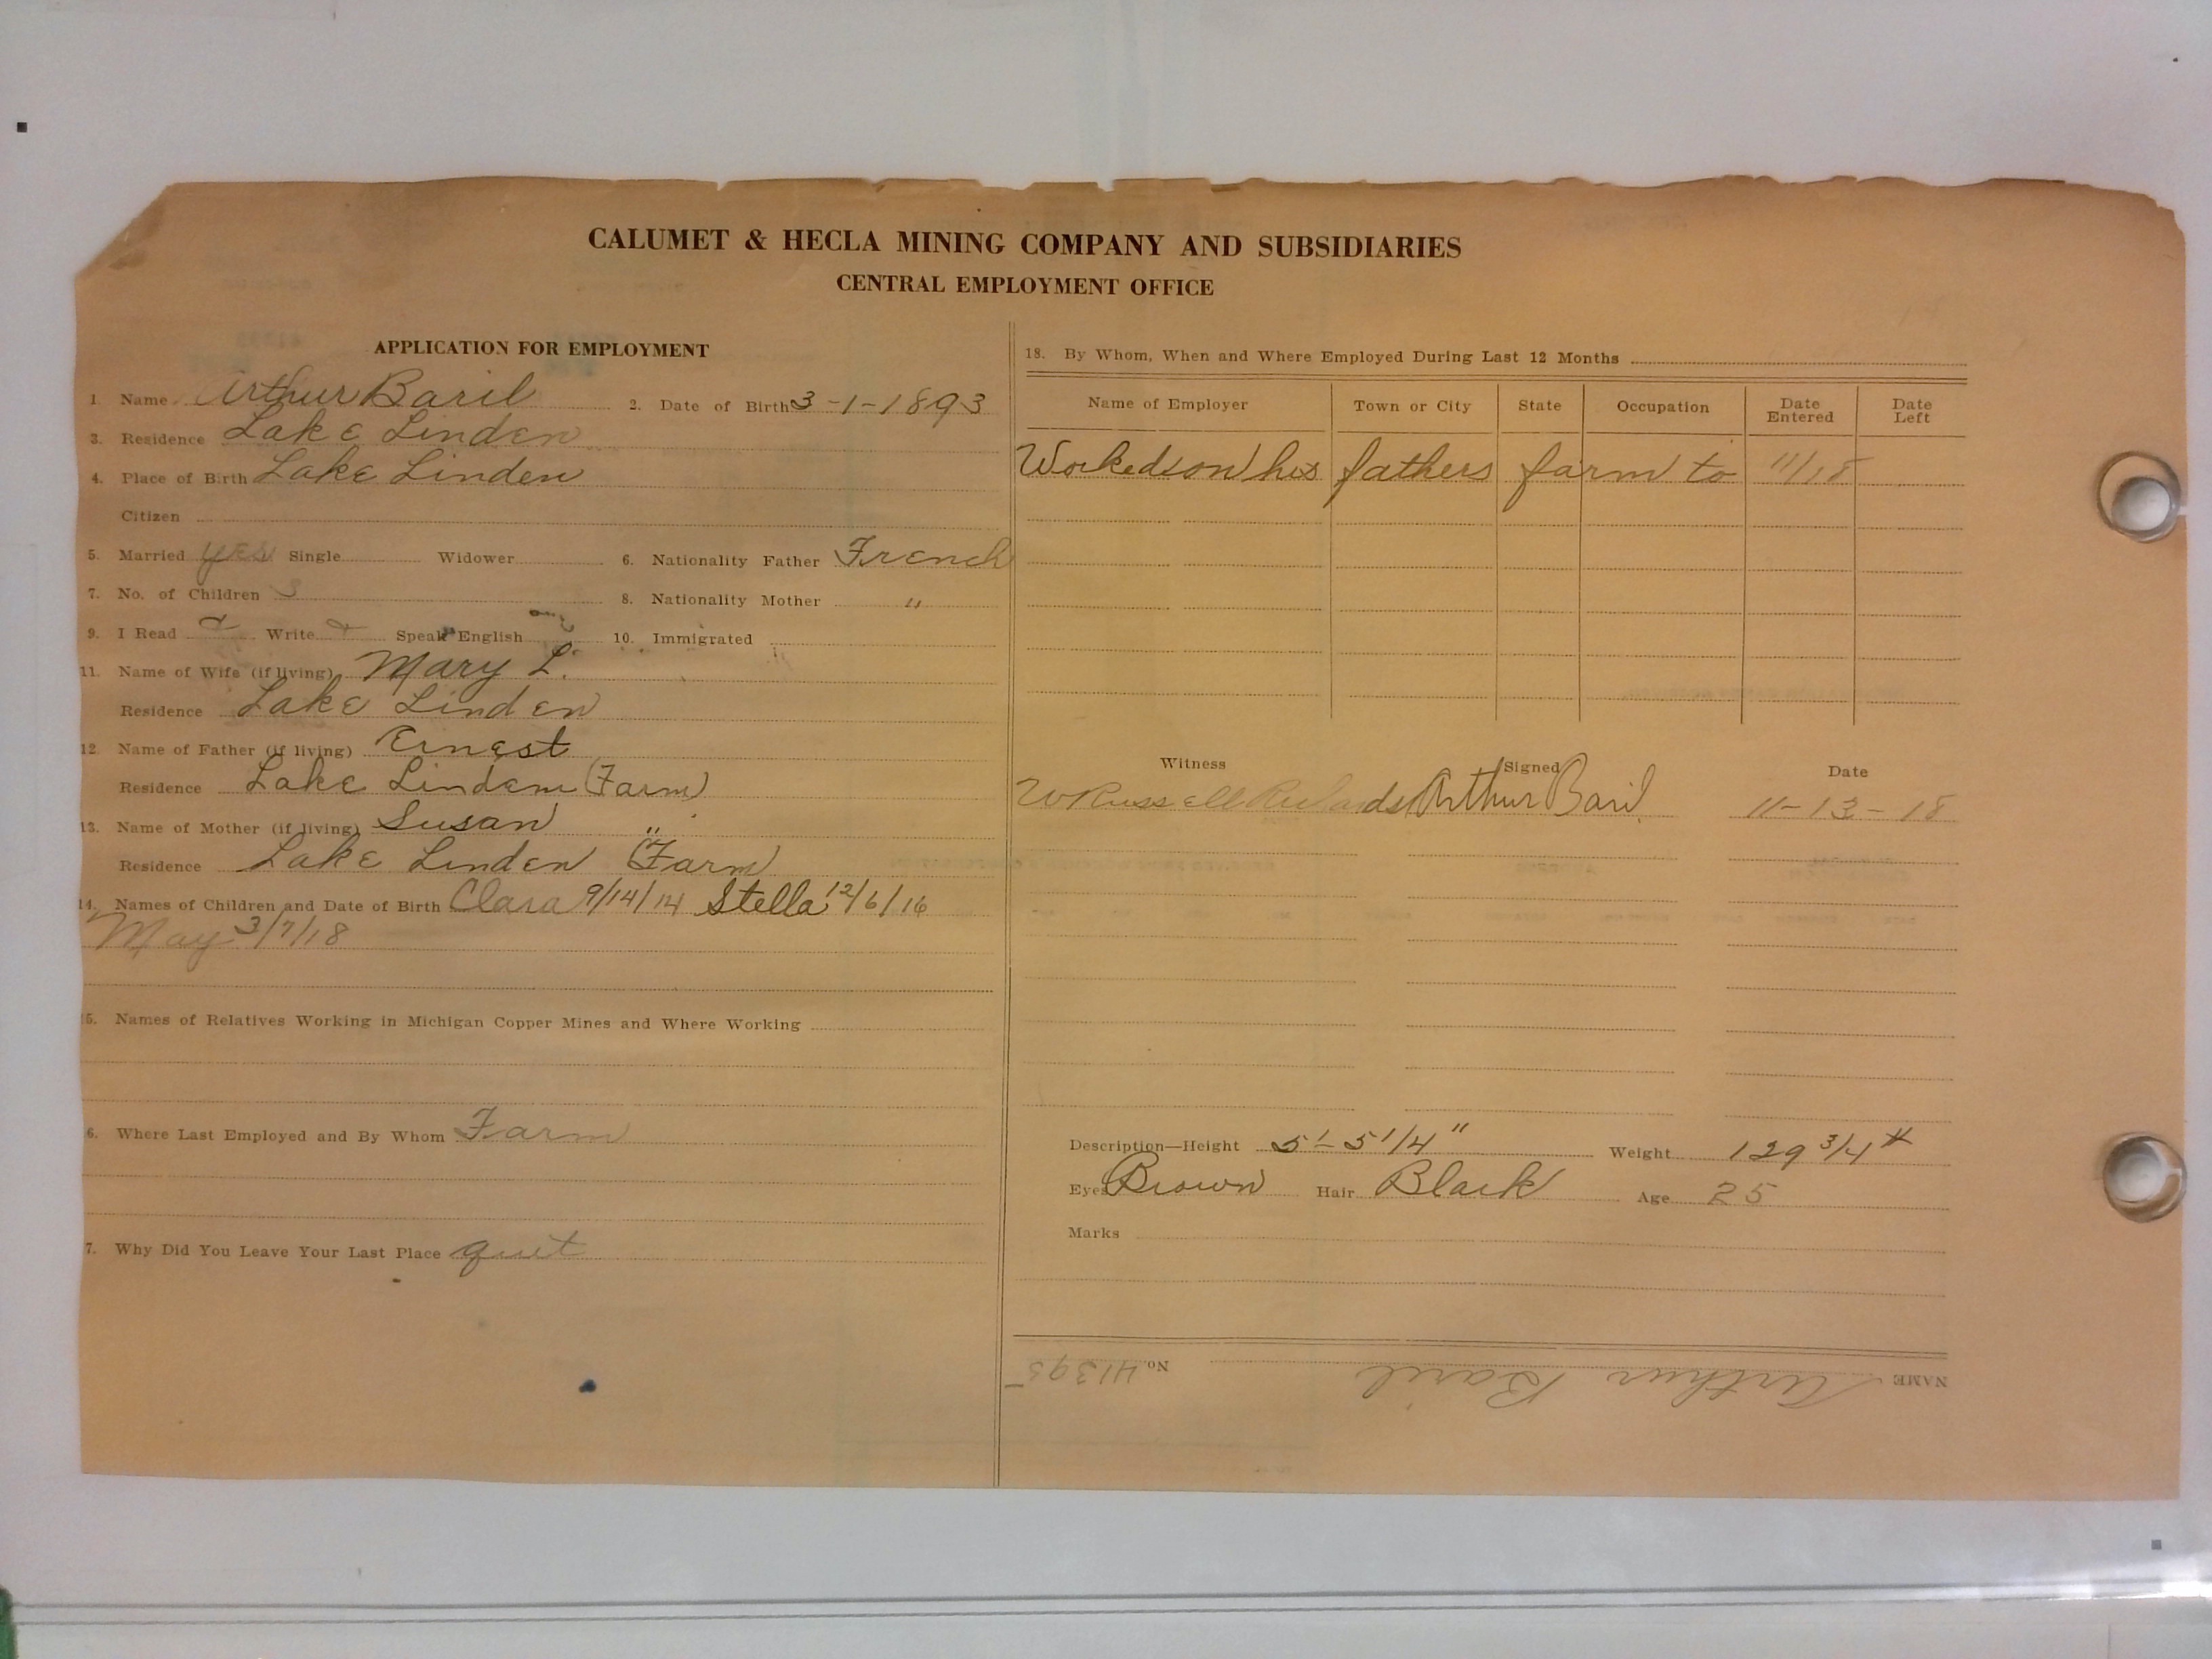 CALUMET & HECLA MINING COMPANY AND SUBSIDIARIES
CENTRAL EMPLOYMENT OFFICE
APPLICATION FOR EMPLOYMENT
1. Name Arthur Baril 2. Date of Birth 3-1-1893
3. Residence Lake Linden
4. Place of Birth Lake Linden
Citizen
5. Married yes Single Widower 6. Nationality Father French
7. No. of Children 3 8. Nationality Mother "
9. I Read Write Speak English 10. Immigrated
11. Name of Wife (if living) Mary L.
Residence Lake Linden
12. Name of Father (if living) Ernest
Residence Lake Linden (Farm)
13. Name of Mother (if living) Susan "
Residence Lake Linden (Farm)
14. Names of Children and Date of Birth Clara 9/14/14 Stella 12/6/16
May 3/7/18
5. Names of Relatives Working in Michigan Copper Mines and Where Working
6. Where Last Employed and By Whom Farm
7. Why Did You Leave Your Last Place quit
18. By Whom, When and Where Employed During Last 12 Months
Name of Employer Town or City State Occupation Date Entered Date Left
Worked on his fathers farm to 11/18
Witness Signed Date
W Russell Richards Arthur Baril 11-13-18
Description—Height 5'-5 1/4" Weight 129 3/4 #
Eyes Brown Hair Black Age 25
Marks
NAME Arthur Baril No. 41395